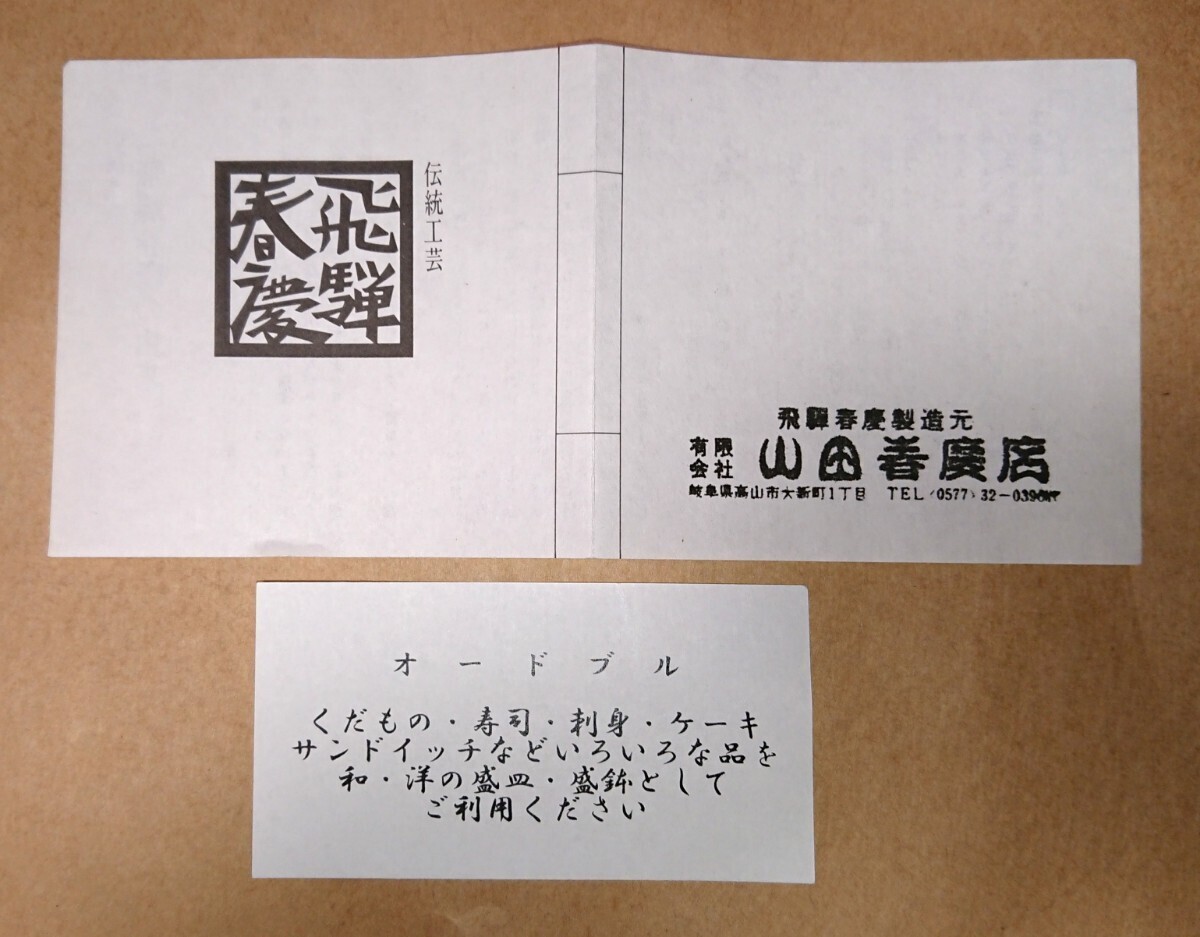 伝統工芸
飛騨
春慶
飛騨春慶製造元
有限会社 山田春慶店
岐阜県高山市大新町1丁目 TEL(0577)32-0396
オードブル
くだもの・寿司・刺身・ケーキ
サンドイッチなどいろいろな品を
和・洋の盛皿・盛鉢として
ご利用ください